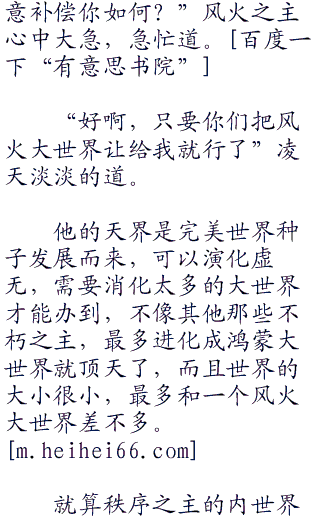 意补偿你如何？”风火之主
心中大急，急忙道。[百度一
下“有意思书院”]
“好啊，只要你们把风
火大世界让给我就行了”凌
天淡淡的道。
他的天界是完美世界种
子发展而来，可以演化虚
无，需要消化太多的大世界
才能办到，不像其他那些不
朽之主，最多进化成鸿蒙大
世界就顶天了，而且世界的
大小很小，最多和一个风火
大世界差不多。
[m.heihei66.com]
就算秩序之主的内世界